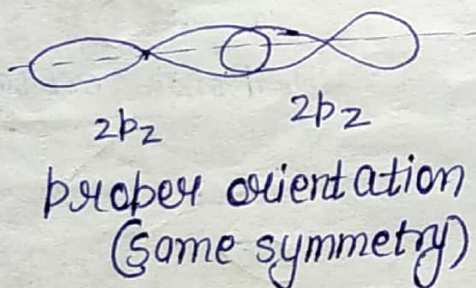 2pz 2pz
proper orientation
(same symmetry)